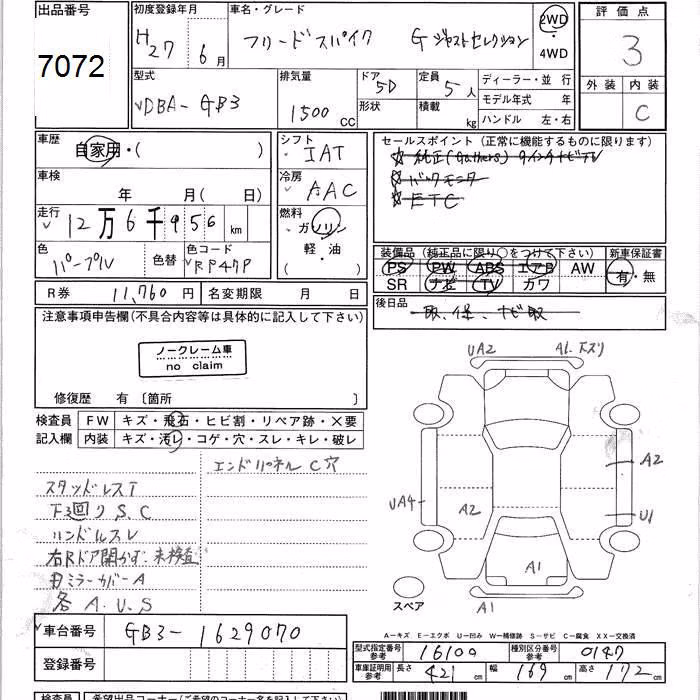 出品番号
7072
初度登録年月
H27 6月
車名・グレード
フリードスパイク Gジャストセレクション
2WD
・
4WD
評価点
3
外装 内装
C
型式
DBA-GB3
排気量
1500 CC
ドア 5D
形状
定員 5人
積載 kg
ディーラー・並行
モデル年式 年
ハンドル 左・右
車歴
自家用・( )
車検
年 月( 日)
走行
12万6千956 km
色
パープル
色替
色コード
RP47P
シフト
IAT
冷房
AAC
燃料
ガソリン
軽・油
( )
セールスポイント(正常に機能するものに限ります)
☆ 純正(Gathers) ワインナビTV
☆ バックモニター
☆ ETC
装備品(純正品に限り○をつけて下さい)
PS PW ABS エアB AW
SR ナビ TV カワ
新車保証書
有・無
後日品
取、保、ナビ取
R券 11,760円
名変期限 月 日
注意事項申告欄(不具合内容等は具体的に記入して下さい)
ノークレーム車
no claim
修復歴 有〔箇所 〕
検査員
記入欄
FW キズ・飛石・ヒビ割・リペア跡・X要
内装 キズ・汚レ・コゲ・穴・スレ・キレ・破レ
エンドパネルC穴
スタッドレスT
下回りS.C
ハンドルスレ
右Rドア開かず.未検査
ミラーカバーA
各A.U.S
UA2
A1.キズリ
A2
UA4
A2
U1
A1
A1
スペア
A-キズ E-エクボ U-凹み W-補修跡 S-サビ C-腐食 XX-交換済
車台番号
GB3-1629070
登録番号
型式指定番号
参考
16100
種別区分番号
参考
0147
車庫証明用
参考
長さ 421cm
幅 169cm
高さ 172cm
検査員
希望出品コーナー(ご希望のコーナー名を記入して下さい)